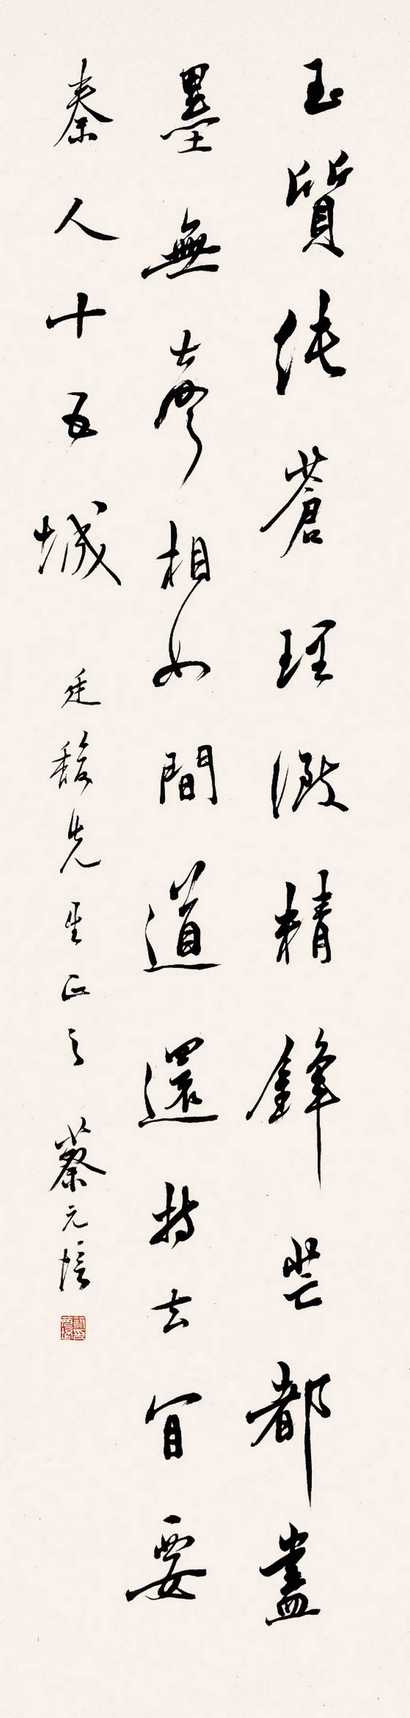 玉質純蒼理緻精鋒芒都盡
墨無聲相如間道還持去肯要
秦人十五城 廷馥先生正之 蔡元培